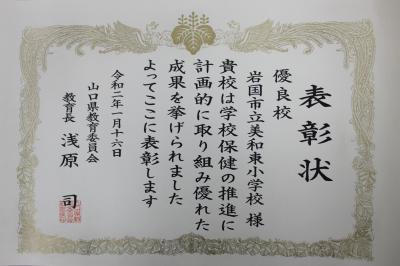 表彰状
優良校
岩国市立美和東小学校 様
貴校は学校保健の推進に
計画的に取り組み優れた
成果を挙げられました
よってここに表彰します
令和二年一月十六日
山口県教育委員会
教育長 浅原 司